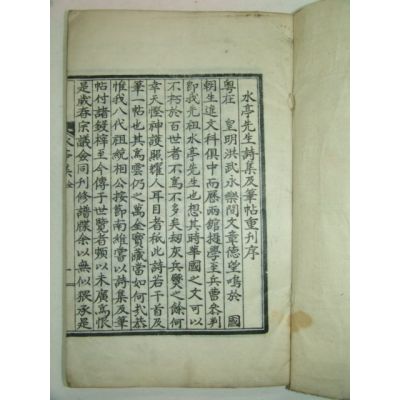 水亭先生詩集及筆帖重刊序
粤在 皇明洪武永樂間文章德望鳴於 國
朝生進文科俱中而歷兩館提學至兵曹參判
即我先祖水亭先生也想其時華國之文可以
不朽於百世者不爲不多矣刼灰兵燹之餘何
幸天慳神護照耀人耳目者秖此詩若干首及
筆一帖也其爲雲仍之萬金寶藏當如何哉恭
惟我八代祖統相公按節南維嘗以詩集及筆
帖付諸鋟梓至今傳于世覽者頗以未廣爲恨
是歲春宗議僉同刊修譜牒余以無似猥承是